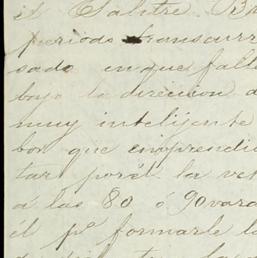 el Salitre. Ba
periodo transcurr
sado en que fall
bajo la direccion d
muy intelijente
bor que emprendi
tar porél la vet
a las 80 ó 90 vara
él pº formarle l